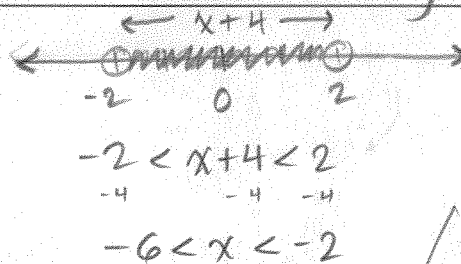 ← x+4 →
-2 0 2
-2 < x+4 < 2
-4 -4 -4
-6 < x < -2